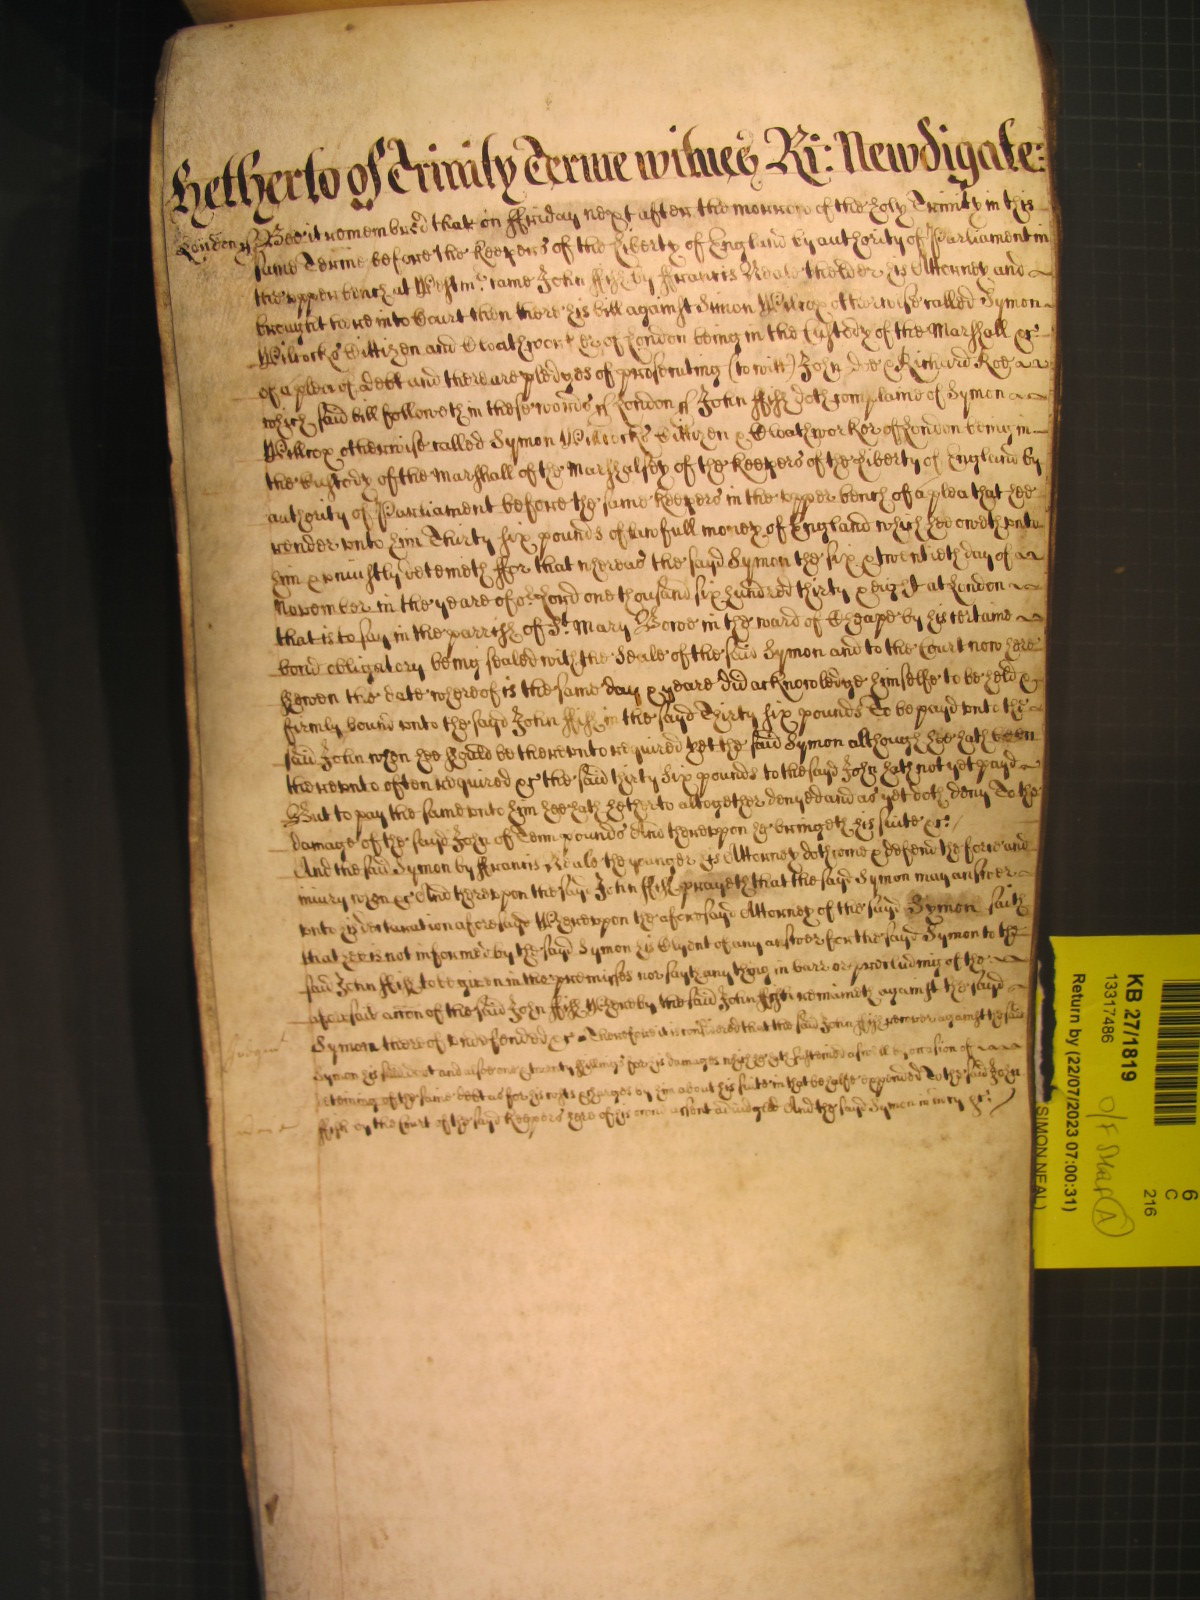 Hetherto of Trinity Terme witnes Ri: Newdigate:
London ss Bee it remembred that on ffriday next after the morrow of the holy Trinity in this
same Terme before the Keepers of the Liberty of England by authority of Parliament in
the upper bench at Westmr. came John ffish by ffrancis Neale the elder his Attorney and
brought here into Court then there his bill against Symon Willcox otherwise called Symon
Wilcocks Cittizen and Cloathworker of London being in the Custody of the Marshall &c
of a plea of debt and there are pledges of prosecuting (to witt) John Doe & Richard Roe
which said bill followeth in these words ss London ss John ffish doth complaine of Symon
Willcox otherwise called Symon Willcocks Cittizen & Cloathworker of London being in
the Custody of the Marshall of the Marshalsey of the Keepers of the Liberty of England by
authority of Parliament before the same Keepers in the upper bench of a plea that hee
render unto him Thirty six pounds of lawfull money of England which hee oweth unto
him & uniustly deteineth ffor that whereas the sayd Symon the six & twentieth day of
November in the yeare of or. Lord one thousand six hundred thirty & eight at London
that is to say in the parrish of St. Mary Bowe in the ward of Cheape by his certaine
bond obligatory being sealed with the Seale of the said Symon and to the Court now here
shewen the date whereof is the same day & yeare did acknowledge himselfe to be held &
firmly bound unto the sayd John ffish in the sayd Thirty six pounds To be payd unto the
said John when hee should be thereunto required yet the said Symon although hee hath been
thereunto often required &c the said thirty six pounds to the sayd John hath not yet payd
But to pay the same unto him hee hath hetherto altogether denyed and as yet doth deny To the
damage of the sayd John of Tenn pounds And thereupon he bringeth his suite &c:
And the said Symon by ffrancis Neale the younger his Attorney doth come & defend the force and
iniury when &c And thereupon the sayd John ffish prayeth that the sayd Symon may answer
unto his declaration aforesayd Whereupon the aforesayd Attorney of the sayd Symon saith
that hee is not informed by the sayd Symon his Clyent of any answer for the sayd Symon to the
said John ffish to be given in the premisses nor sayth any thing in barr or precluding of the
aforesaid accon of the said John ffish Whereby the said John ffish remaineth against the sayd
Symon thereof undefended &c Therefore it is considered that the said John ffish recover against the said
Symon his said debt and alsoe twenty shillings for his damages which he hath susteined aswell by occasion of
deteining of the same debt as for his costs & charges by him about his suite in that behalfe expended To the said John
ffish by the Court of the sayd Keepers here of his owne assent adiudged And the sayd Symon in mercy &c:
KB 27/1819
13317486
Return by (22/07/2023 07:00:31)
(SIMON NEAL)
6
C
216
A